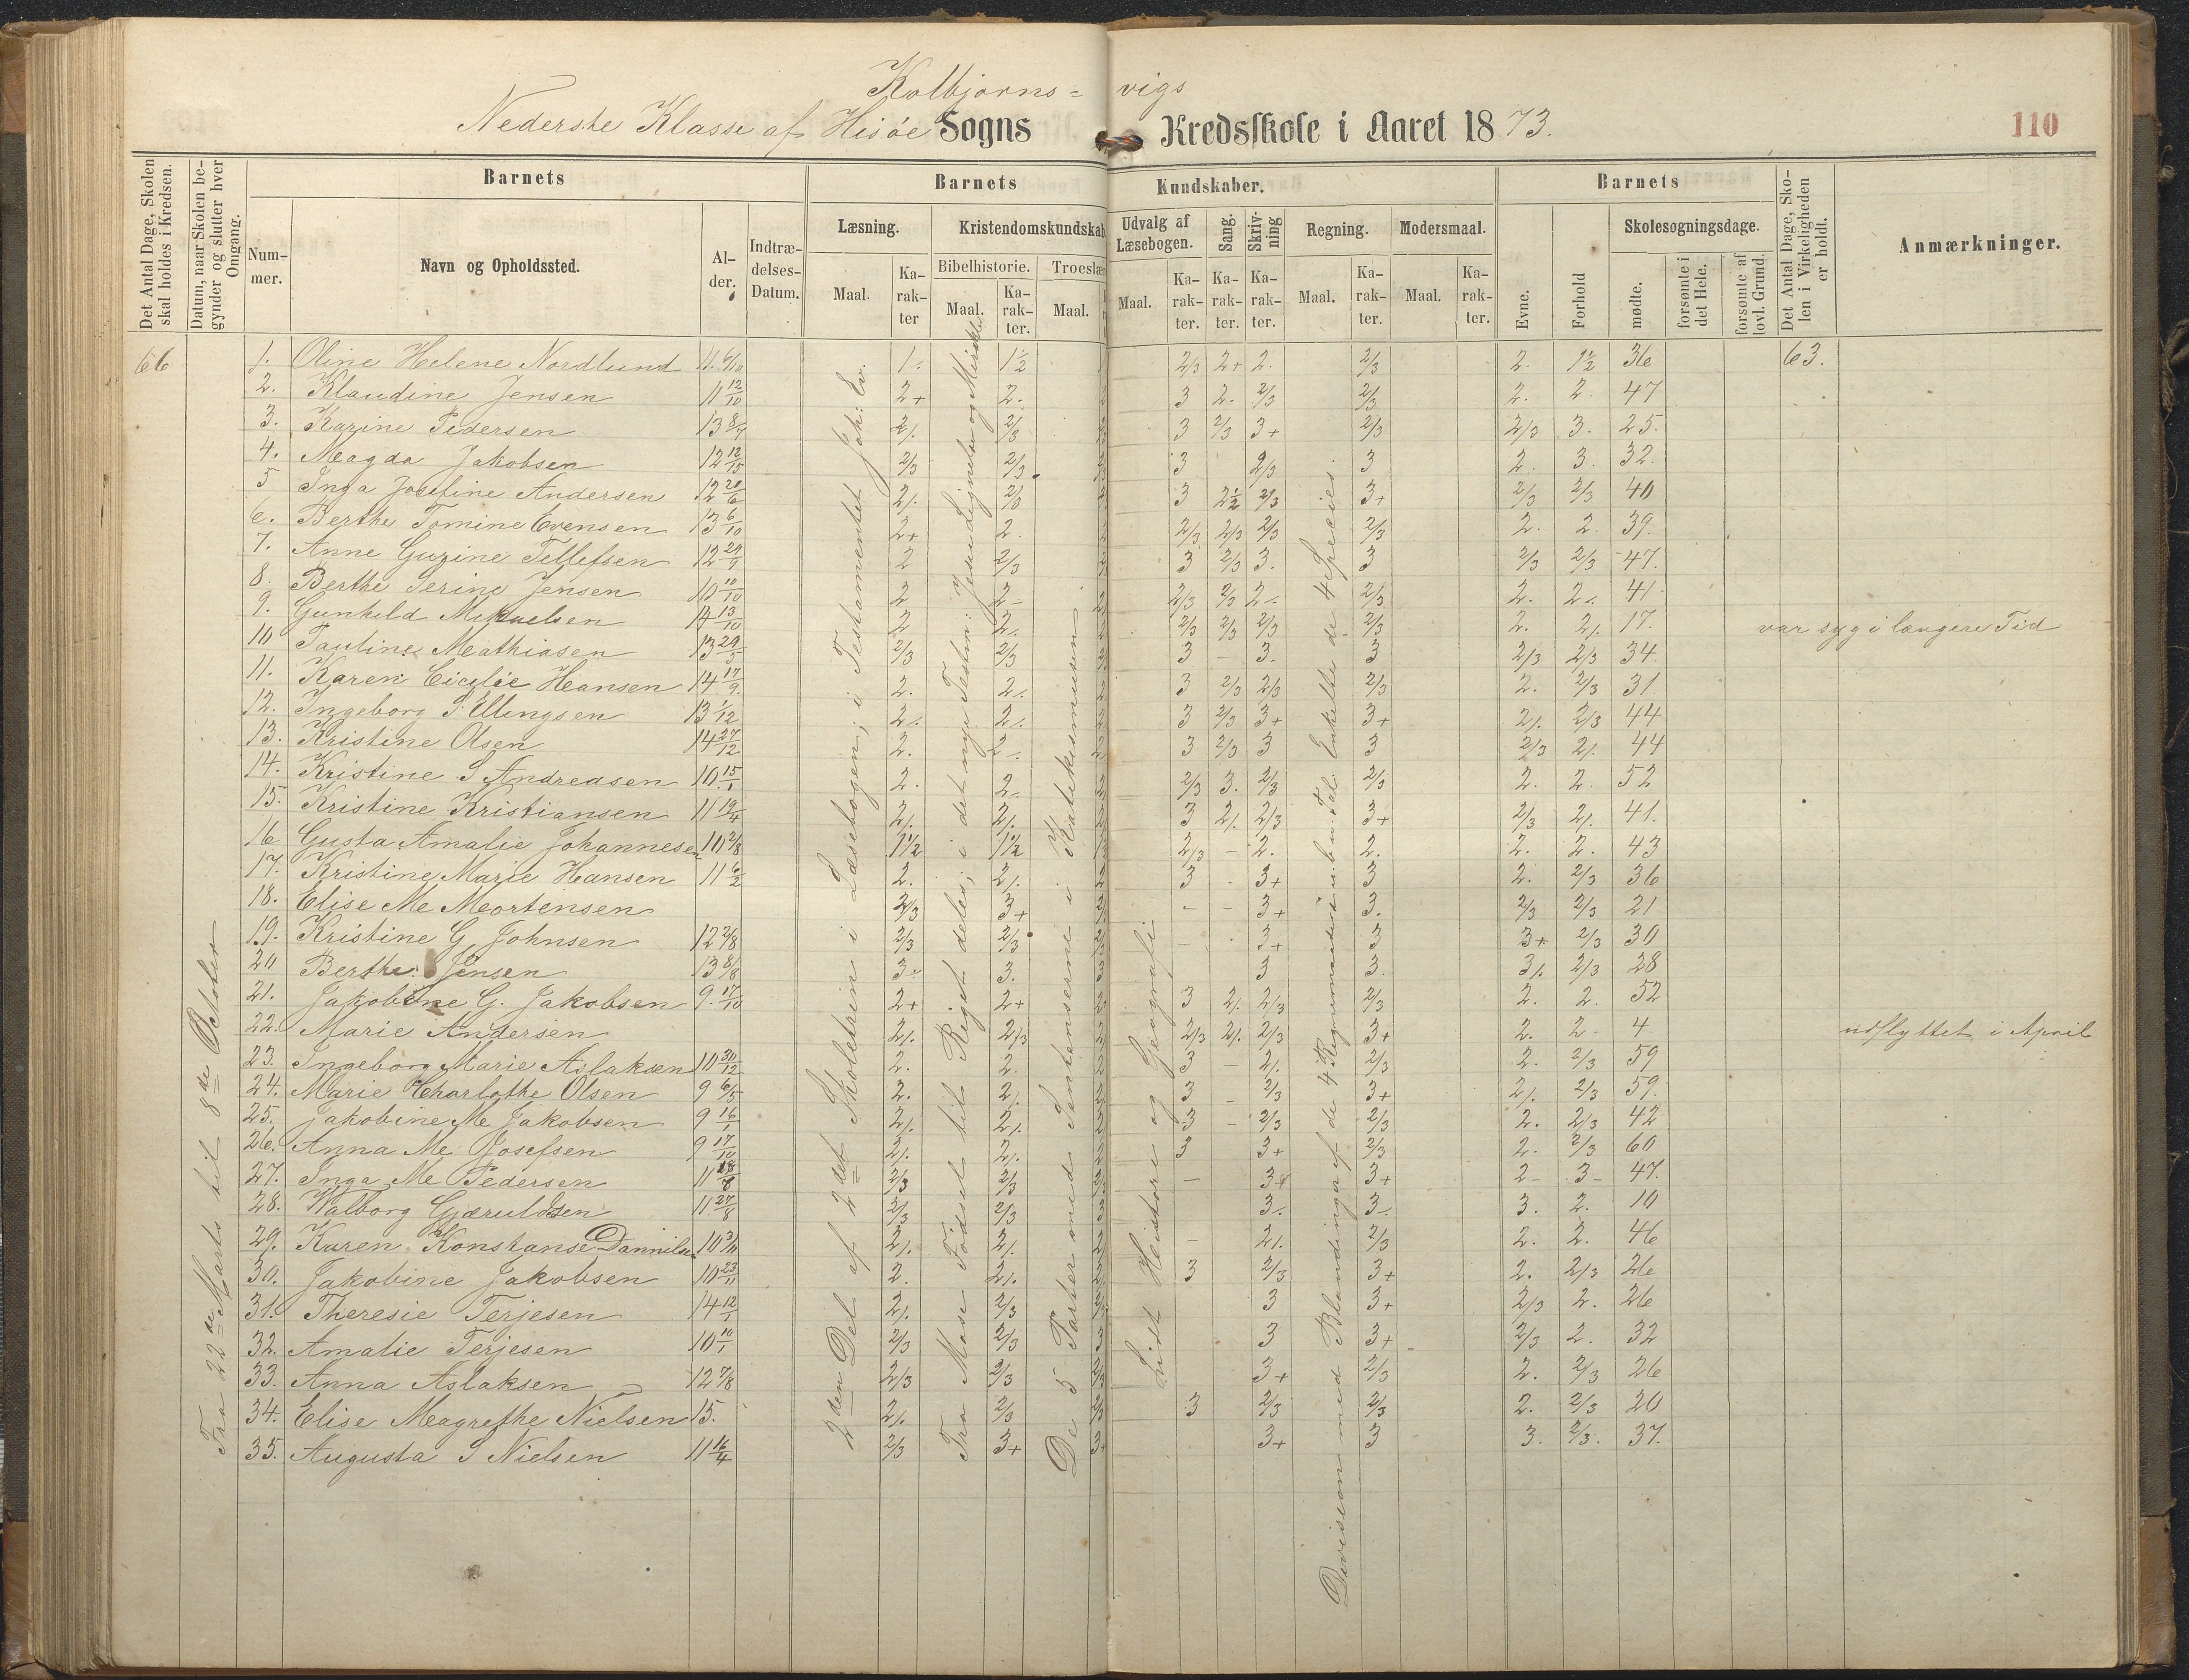 Kolbjørns= vigs
Nederste Klasse af Hisöe Sogns Kredsskole i Aaret 1873.
110
Det Antal Dage, Skolen skal holdes i Kredsen.
Datum, naar Skolen begynder og slutter hver Omgang.
Barnets
Nummer.
Navn og Opholdssted.
Alder.
Indtrædelses-Datum.
Barnets Kundskaber.
Læsning.
Maal.
Karakter
Kristendomskundskab
Bibelhistorie.
Maal.
Karakter.
Troeslær
Maal.
Udvalg af Læsebogen.
Maal.
Karakter.
Sang.
Karakter.
Skrivning
Karakter.
Regning.
Maal.
Karakter.
Modersmaal.
Maal.
Karakter.
Barnets
Evne.
Forhold
Skolesøgningsdage.
mødte.
forsømte i det Hele.
forsømte af lovl. Grund.
Det Antal Dage, Skolen i Virkeligheden er holdt.
Anmærkninger.
66
Fra 22de Marts til 8de October
2den Del af 2det Skoletrin i Læsebogen; i Testamentet Joh: Ev.
Fra Mose Födsel til Riget deles; i det nye Testm: Jesu Lignelser og Mirakle
De 5 Parter med Sentenserne i Katekesimusen
Lidt Historie og Geografi
Devision med Blandinger af de 4 Regnemaader i u. b. v. Tal. Enkelte de 4 Specier.
1. Oline Helene Nordlund 11 6/10 1. 1½ 2/3 2+ 2. 2/3 2. 1½ 36 63.
2. Klaudine Jensen 11 12/10 2+ 2. 3 2. 2/3 2/3 2. 2. 47
3. Karine Pedersen 13 8/7 2/. 2/3 3 2/3 3+ 2/3 2/3 3. 25.
4. Magda Jakobsen 12 12/15 2/3 2/3 3 2/3 3 2. 3. 32.
5 Inga Josefine Andersen 12 20/6 2/. 2/3 3 2½ 2/3 3+ 2/3 2/3 40
6. Berthe Tomine Evensen 13 6/10 2+ 2. 2/3 2/3 2/3 2/3 2. 2. 39.
7. Anne Guzine Tellefsen 12 29/9 2 2/3 3 2/3 3. 3 2/3 2/3 47.
8. Berthe Serine Jensen 10 10/10 2 2- 2/3 2/3 2. 2/3 2. 2. 41
9. Gunhild Mikaelsen 14 13/10 2 2. 2/3 2/3 2/3 2/3 2. 2/. 17. var syg i længere Tid
10 Pauline Mathiasen 13 29/5 2/3 2/3 3 - 3. 3 2/3 2/3 34.
11. Karen Cicilie Hansen 14 17/9 2. 2. 3 2/3 2/3 2/3 2. 2/3 31.
12. Ingeborg P. Ellingsen 13 1/12 2/. 2/. 3 2/3 3+ 3+ 2/. 2/3 44
13. Kristine Olsen 14 27/12 2. 2. 3 2/3 3 3 2/3 2/. 44
14. Kristine S Andreasen 10 15/1 2. 2. 2/3 3. 2/3 2/3 2. 2. 52
15. Kristine Kristiansen 11 19/4 2/. 2/. 3 2/. 2/3 3+ 2/3 2/. 41.
16 Gusta Amalie Johannesen 10 2/8 1½ 1½ 2/3 - 2. 2. 2. 2. 43
17. Kristine Marie Hansen 11 6/2 2. 2/. 3 - 3+ 3 2. 2/3 36
18. Elise Me Mortensen 2/3 3+ - - 3+ 3. 2/3 2/3 21
19. Kristine G. Johnsen 12 2/8 2/3 2/3 - 3+ 3 3+ 2/3 30
20 Berthe Jensen 13 8/8 3. 3. 3 3. 3/. 2/3 28
21. Jakobine G. Jakobsen 9. 17/10 2+ 2+ 3 2/. 2/3 2/3 2. 2. 52
22. Marie Andersen 2/. 2/3 2/3 2/. 2/3 3+ 2. 2. 4 udflyttet i April
23. Ingeborg Marie Aslaksen 10 30/12 2. 2. 3 - 2/. 2/3 2. 2/3 59
24. Marie Charlothe Olsen 9 6/5 2. 2/. 3 - 2/3 3+ 2/. 2/3 59.
25. Jakobine Me Jakobsen 9 16/1 2/. 2/. 3 - 2/3 2/3 2. 2/3 42
26. Anna Me Josefsen 9 17/10 2/. 2/. 3 3+ 2/3 2. 2/3 60
27. Inga Me Pedersen 11 18/8 2/3 2/3 - 3+ 3+ 2- 3- 47.
28. Valborg Gjæruldsen 11 27/8 2/3 2/3 3. 3. 3. 2. 10
29. Karen Konstanse Dannilsen 10 3/11 2/. 2/. - 2/. 2/3 2. 2. 46
30. Jakobine Jakobsen 10 23/11 2. 2/. 3 2/3 3+ 2. 2/3 26
31. Theresie Terjesen 14 12/1 2/. 2/3 3 3+ 2/3 2. 26
32. Amalie Terjesen 10 10/1 2/3 2/3 3 3+ 2/3 2. 32
33. Anna Aslaksen 12 7/8 2/3 2/3 3+ 2/3 2. 2/3 26
34. Elise Magrethe Nielsen 15. 2/. 2/3 3 2/3 2/3 2. 2/3 20
35. Augusta S Nielsen 11 16/4 2/3 3+ 3+ 3 3. 2/3. 37.